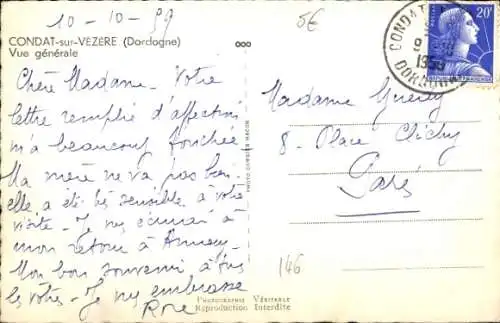 10-10-59
5€
CONDAT-sur-VEZERE (Dordogne)
Vue générale
20F
CONDAT
1959
DORDOGNE
Chère Madame - Votre
lettre remplie d'affection
m'a beaucoup touchée
Ma mère ne va pas bien.
elle a été bien sensible à votre
visite - Je vous écrirai à
mon retour à Annecy -
Mon bon souvenir à tous
les vôtres - Je vous embrasse
Rose
Madame
8 - Place Clichy
Paris
146
PHOTOGRAPHIE VÉRITABLE
Reproduction Interdite